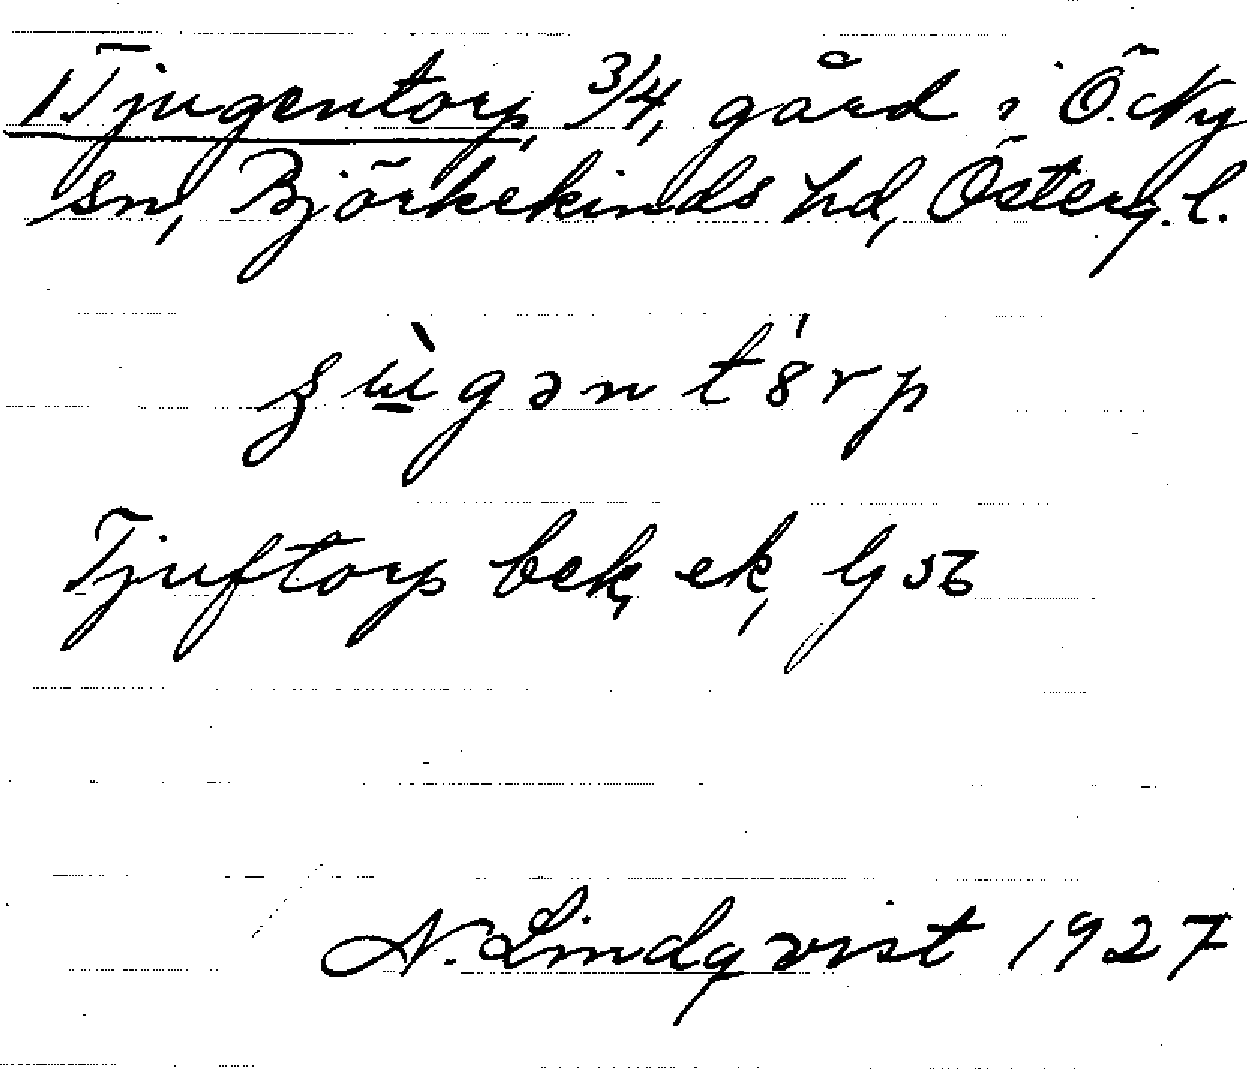 1 Tjugentorp, 3/4, gård i Ö. Ny
sn, Björkekinds hd, Österg. l.
Tjuftorp bek, ek,
N. Lindqvist 1927